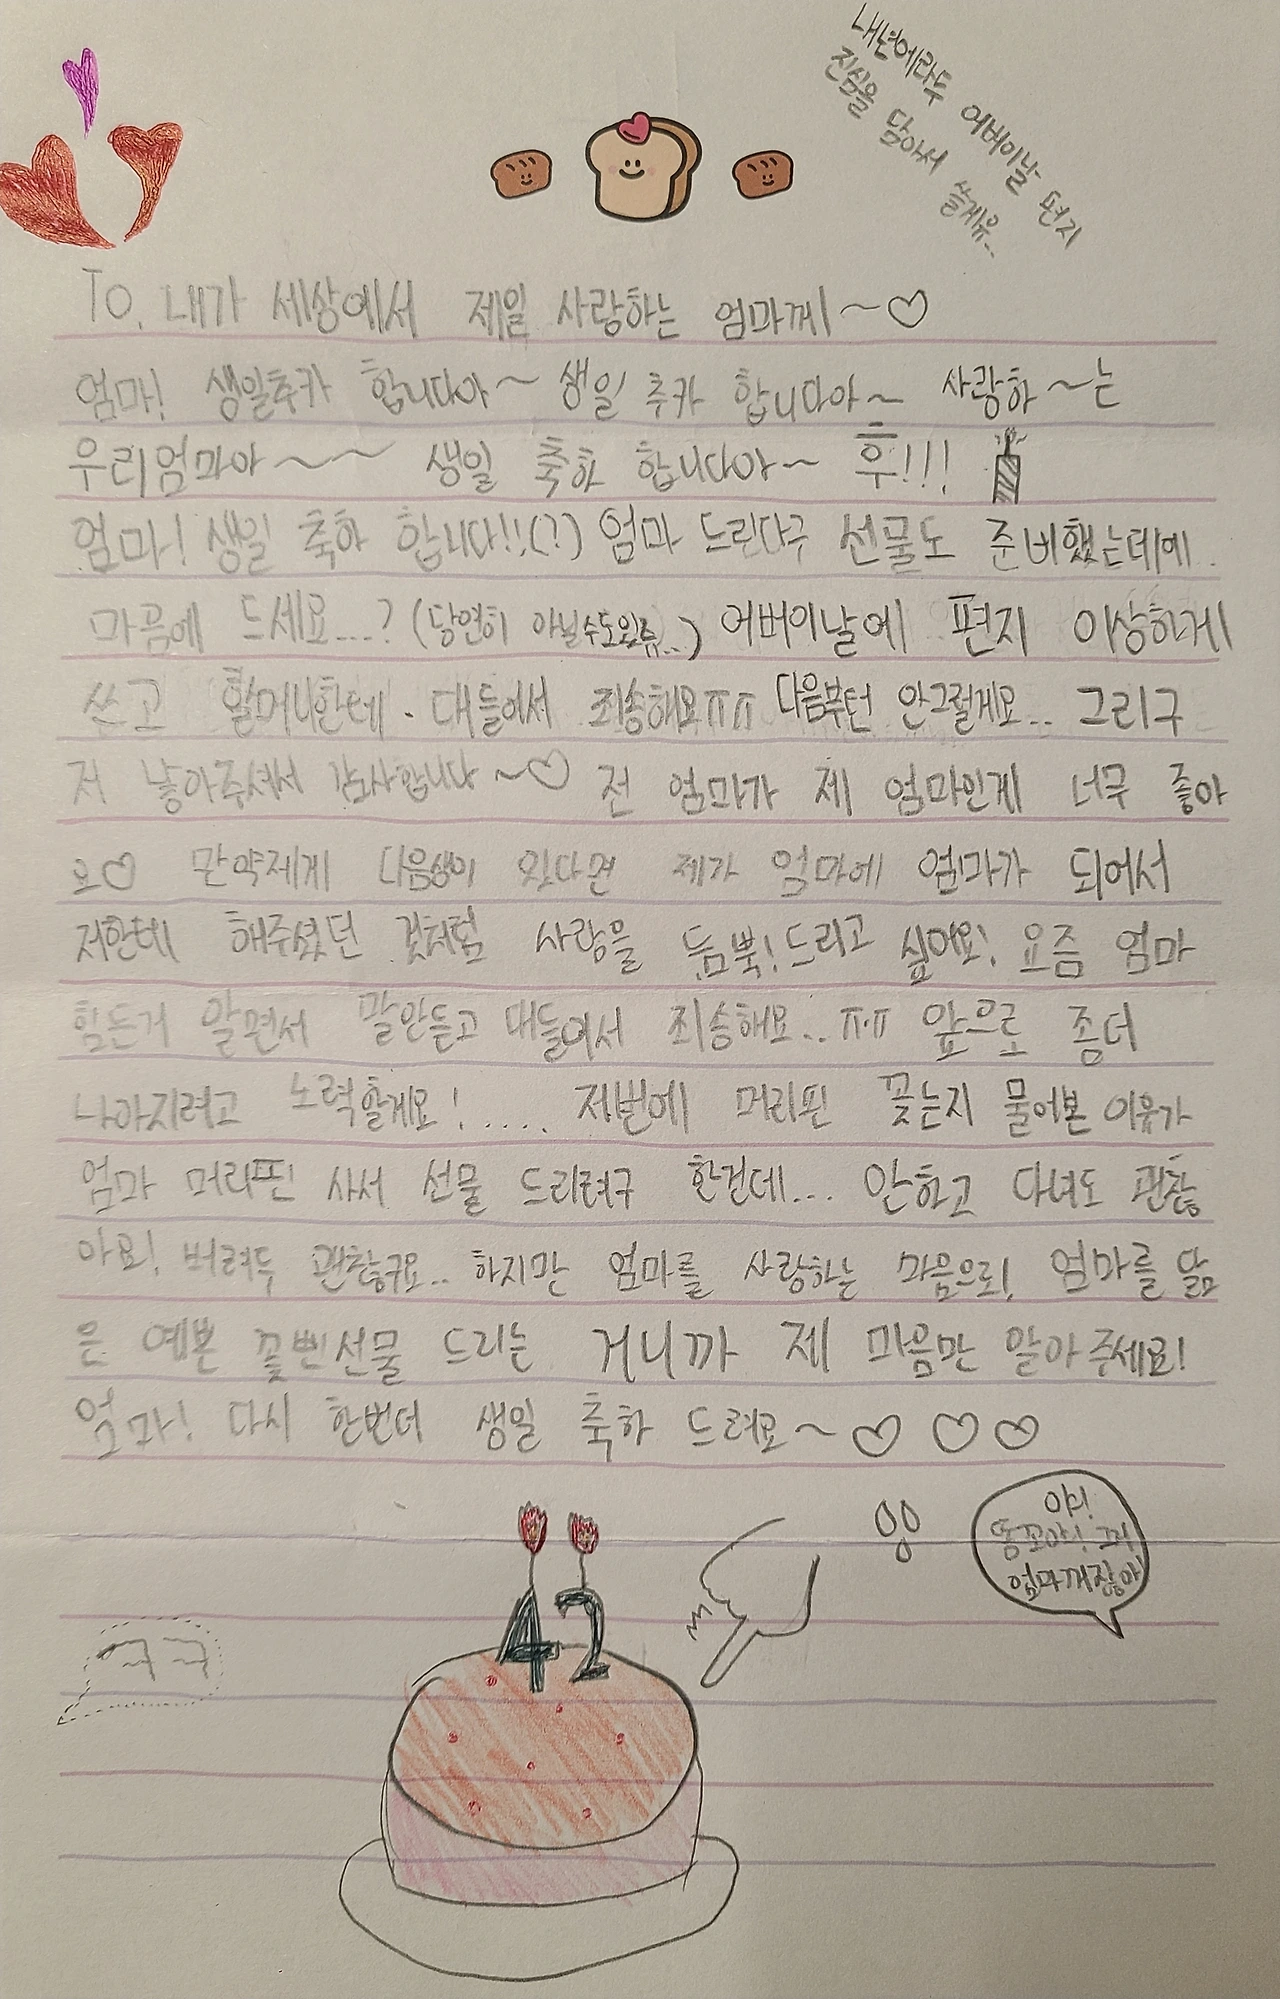 내년에라두 어버이날 편지
진심을 담아서 쓸게유...
To. 내가 세상에서 제일 사랑하는 엄마께~♡
엄마! 생일추카 합니다아~ 생일 추카 합니다아~ 사랑하~는
우리엄마아~~ 생일 축하 합니다아~ 후!!!
엄마! 생일 축하 합니다!!(?) 엄마 드린다구 선물도 준비했는데에.
마음에 드세요...? (당연히 아닐수도있쥬...) 어버이날에 편지 이상하게
쓰고 할머니한테 대들어서 죄송해요ㅠㅠ 다음부턴 안그럴게요... 그리구
저 낳아주셔서 감사합니다~♡ 전 엄마가 제 엄마인게 너무 좋아
요♡ 만약제게 다음생이 있다면 제가 엄마에 엄마가 되어서
저한테 해주셨던 것처럼 사랑을 듬뿍! 드리고 싶어요! 요즘 엄마
힘든거 알면서 말안듣고 대들어서 죄송해요..ㅠ.ㅠ 앞으로 좀더
나아지려고 노력할게요!..... 저번에 머리핀 꽂는지 물어본 이유가
엄마 머리핀 사서 선물 드리려구 한건데... 안하고 다녀도 괜찮
아요! 버려두 괜찮구요.. 하지만 엄마를 사랑하는 마음으로!, 엄마를 닮
은 예쁜 꽃삔선물 드리는 거니까 제 마음만 알아주세요!
엄마! 다시 한번더 생일 축하 드려요~♡♡♡
야!
똥꼬야!
엄마께잖아
42